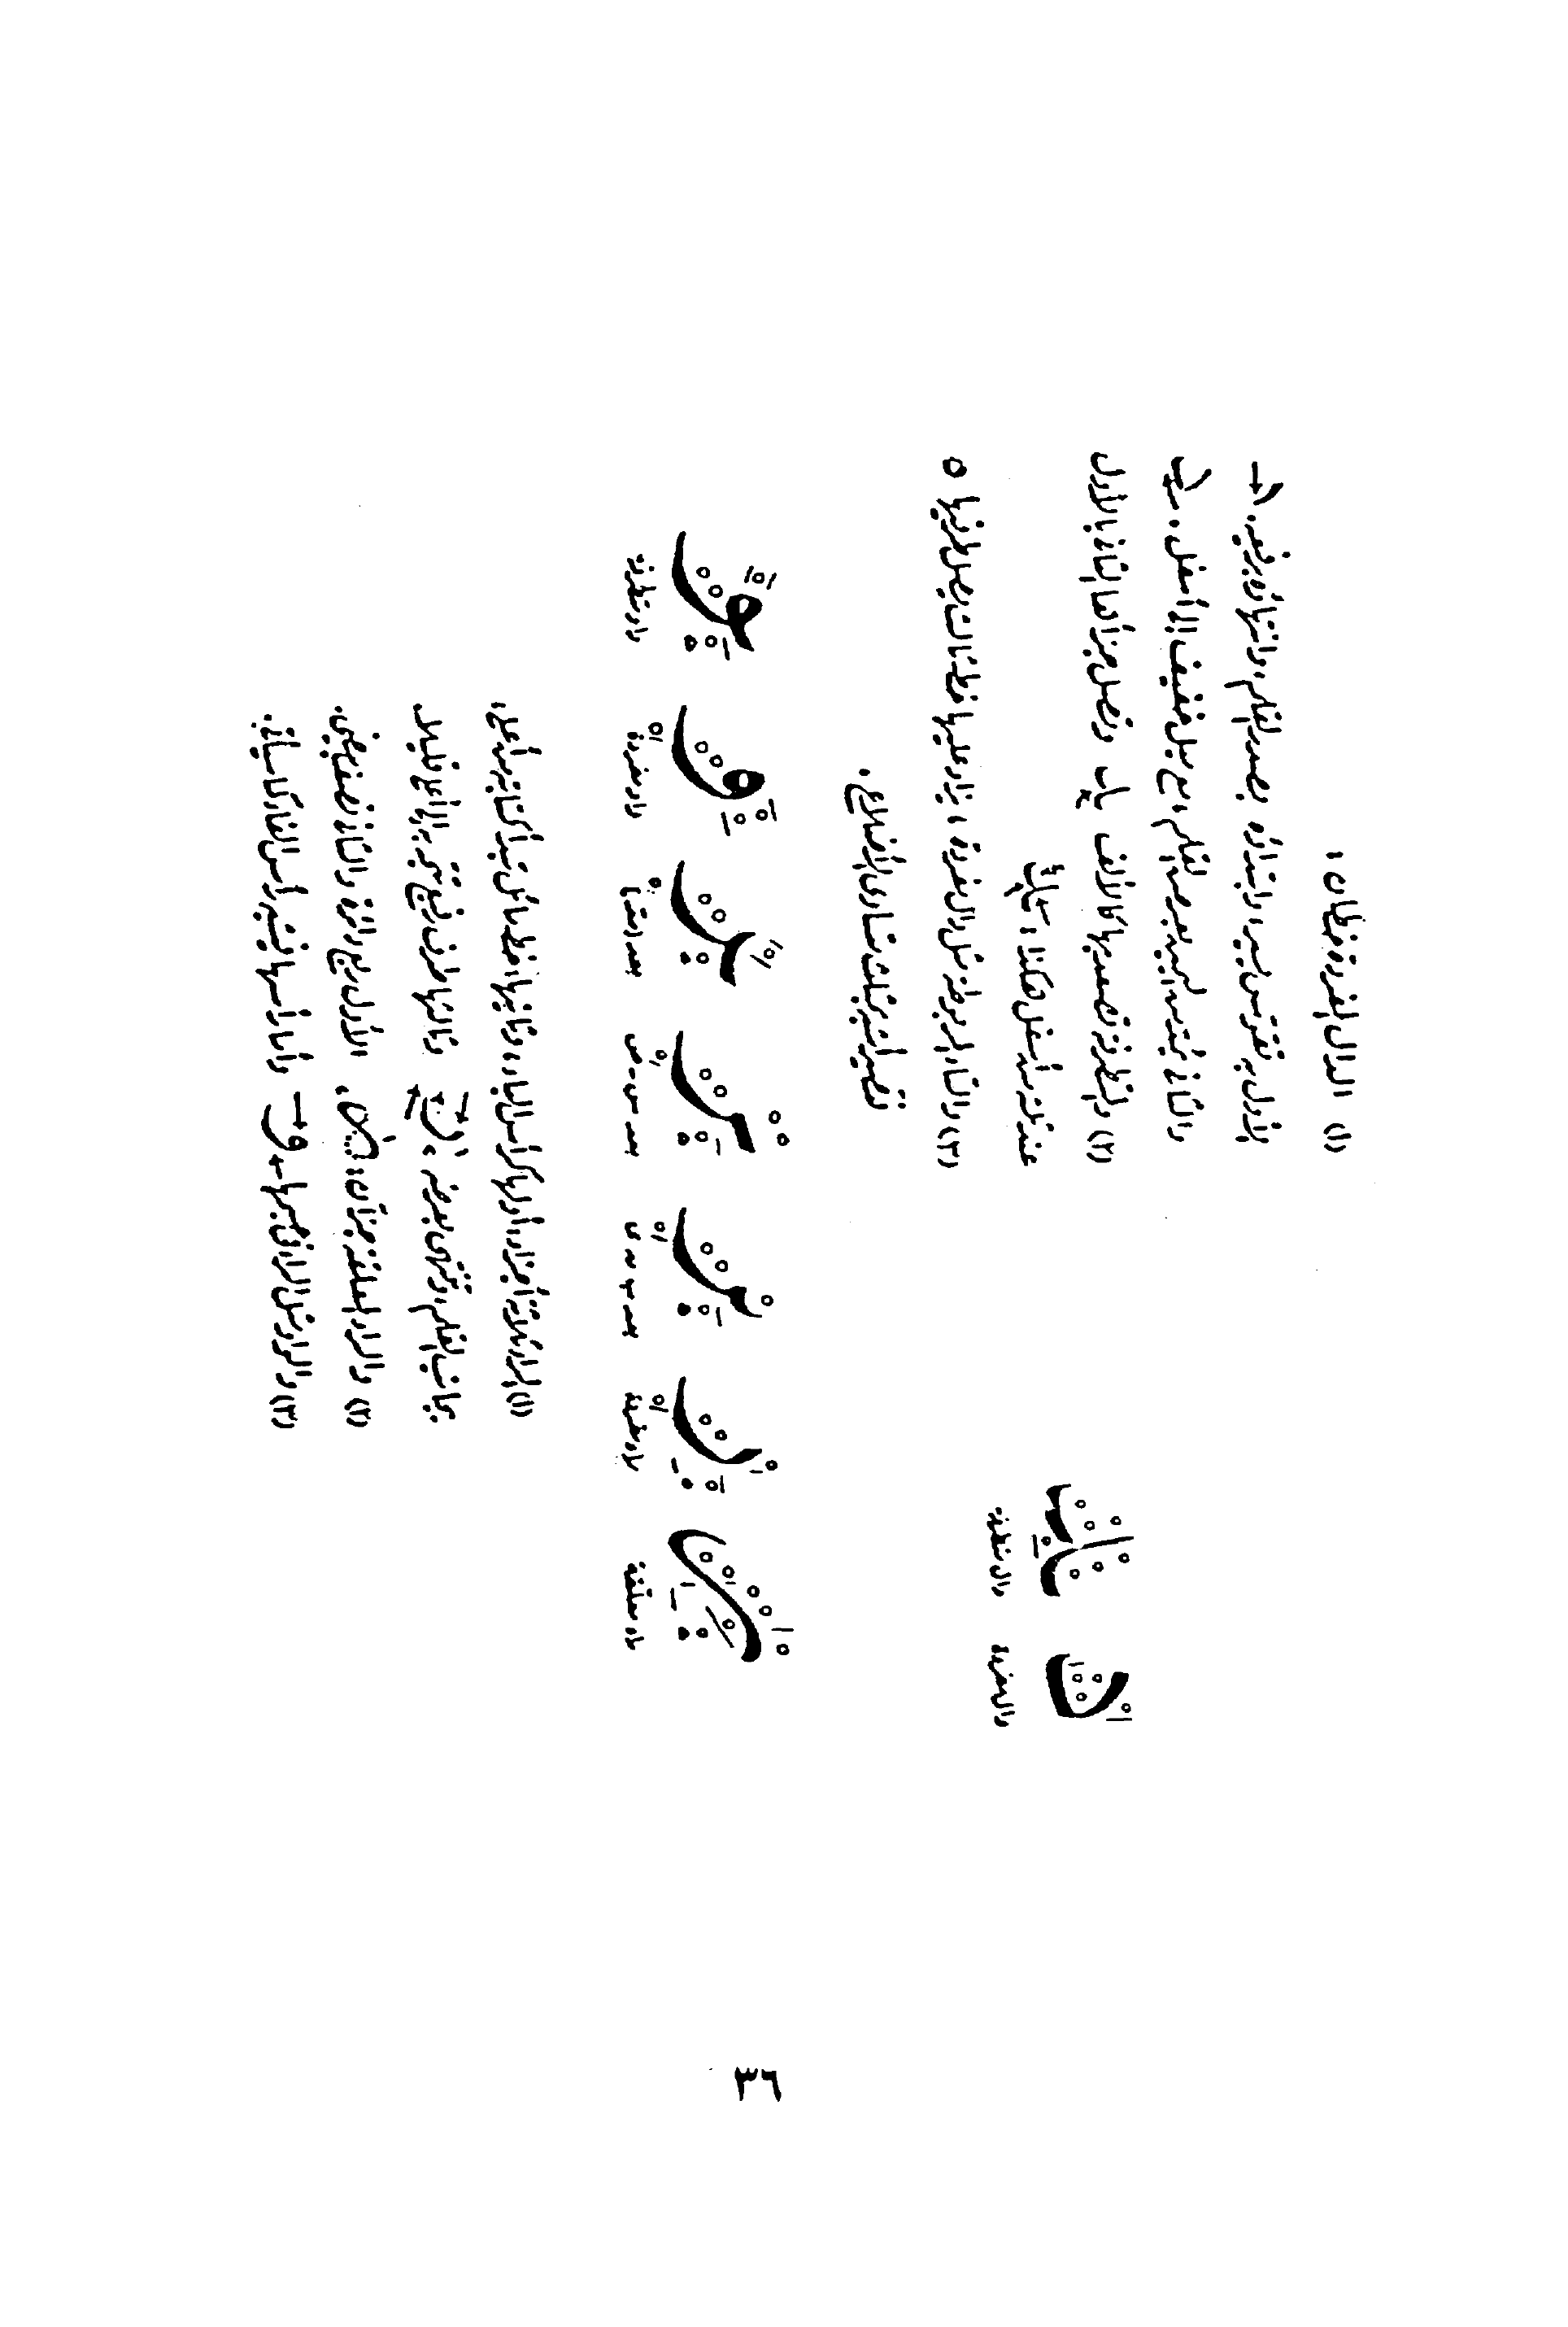 (١) الدال المفردة خطان :
الأول به تقوس يسير، وابتداؤه بصدر القلم، وانتهاؤه برفعه.
والثاني يُبتدئ به بعرض القلم، مع ميل خفيف إلى أسفل.
(٢) والمتطرفة تصعد بها كالألف وتصل جزأها الثاني بالأول
عند ثلثه من أسفل هكذا :
(٣) والثاء المربوطة مثل دال مفردة، يزاد عليها خط ثالث يصل طرفيها ه
فتصير أشبه بمثلث متساوى الأضلاع.
دال مفردة
دال متطرفة
راء معلقة
راء مفردة
بعد س - ص
واو مفردة
واو متطرفة
(١) الراء ثلاثة أجزاء، أولها كرأس الباء، وثانيها خط مائل تبدأ كتابته من أعلى
بجانب القلم، وتنتهي بعرضه وثالثها طرف رفيع تتجه به إلى أعلى قليلا
(٢) والراء المعلقة جزآن : الأول ربع دائرة والثاني نصف بيضى.
(٣) والواو مثل الراء في جسمها وأما رأسها فيشبه رأس الفاء كما سيأتي.
٣٦